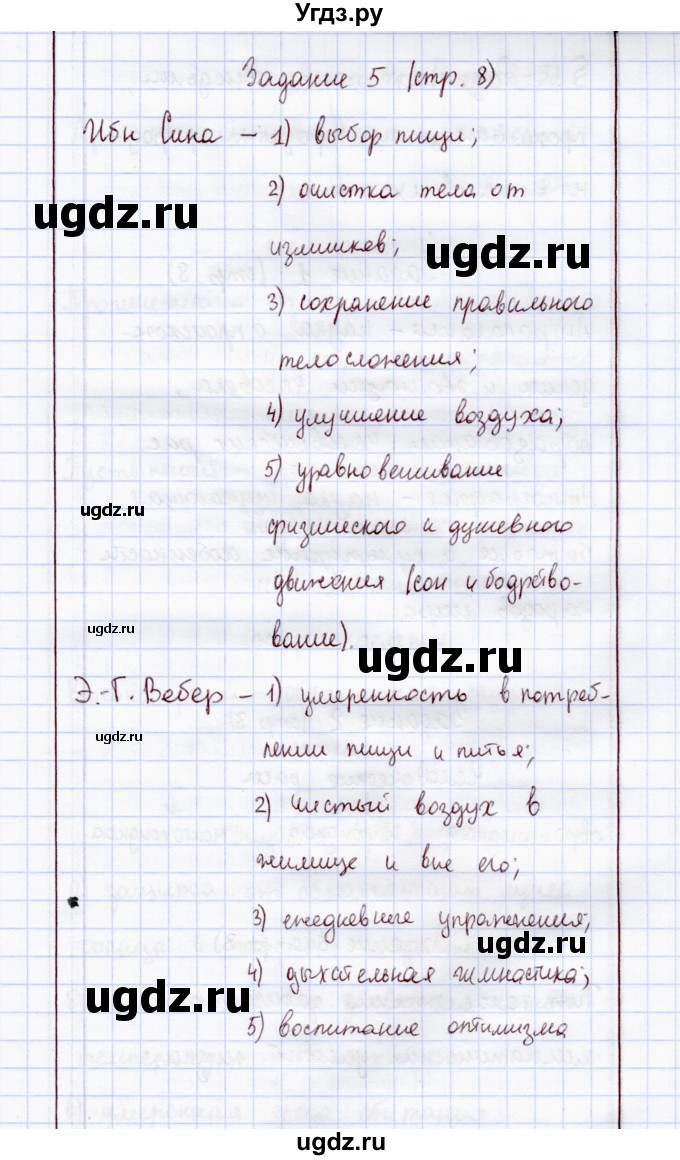 Угдз.ру
Задание 5 (стр. 8)
Ибн Сина – 1) выбор пищи;
2) очистка тела от
ugdz.ru
излишков;
ugdz.ru
3) сохранение правильного
телосложения;
4) улучшение воздуха;
5) уравновешивание
ugdz.ru
физического и душевного
движения (сон и бодрство-
ugdz.ru
вание).
ugdz.ru
Э.-Г. Вебер – 1) умеренность в потреб-
ugdz.ru
лении пищи и питья;
2) чистый воздух в
жилище и вне его;
3) ежедневные упражнения;
ugdz.ru
4) дыхательная гимнастика;
ugdz.ru
5) воспитание оптимизма
ugdz.ru